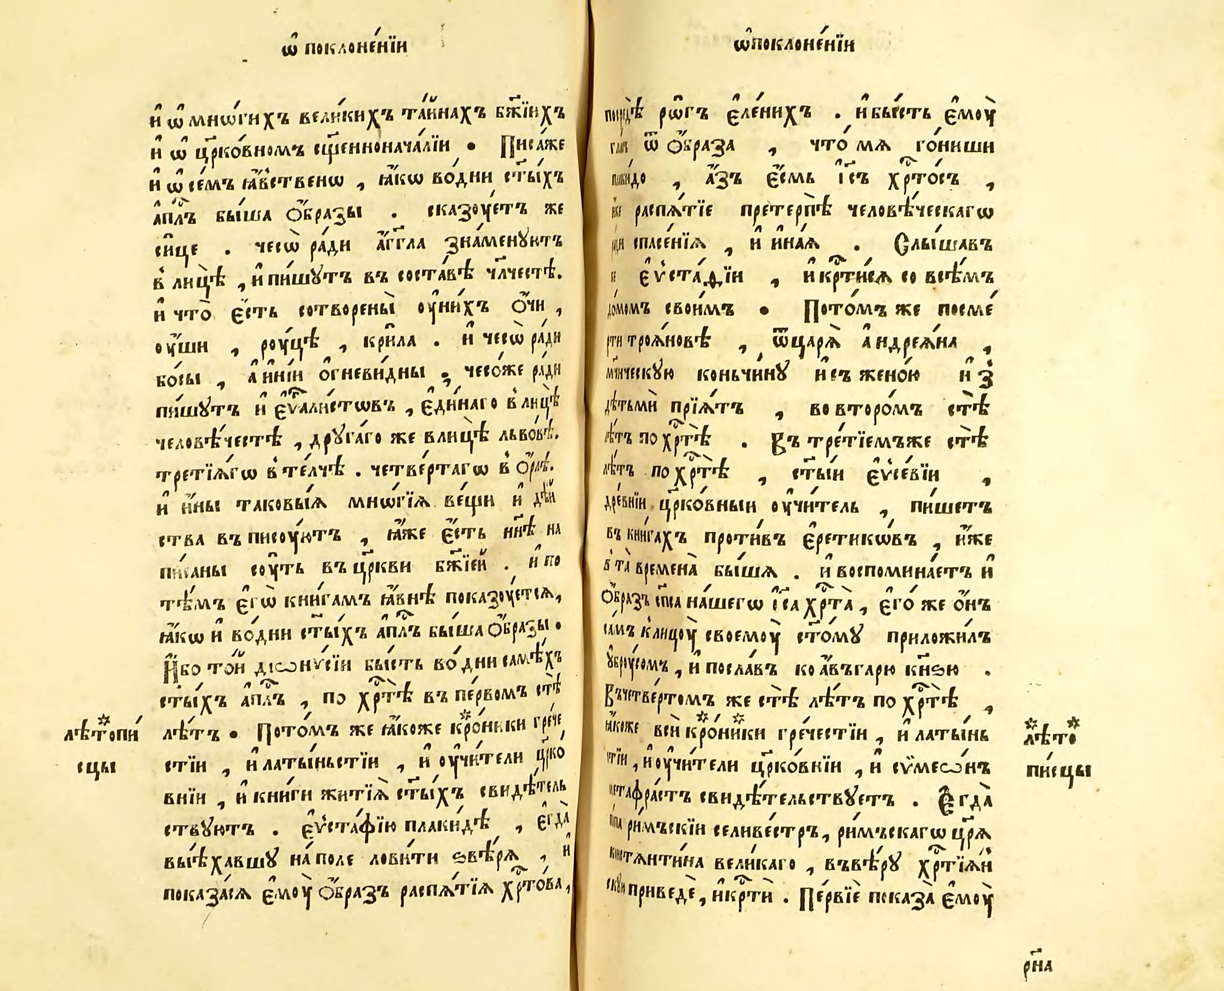 ѿ поклоне́нїи
и҆ ѡ҆ мнѡ́гихъ вели́кихъ та́инахъ бж҃їихъ
и҆ ѡ҆ цр҃ко́вномъ сщ҃енноначалїи . Писа́же
и҆ ѡ҆ се́мъ ꙗ҆́вственѡ , ꙗ҆́кѡ во дни ст҃ы́хъ
а҆пл҃ъ бы́ша ѻ҆́бразы . сказꙋ́етъ же
си́це . чесѡ̀ ра́ди а҆́гг҃ла зна́менꙋютъ
в лицѣ̀ , и҆ пи́шꙋтъ въ соста́вѣ чл҃честѣ.
и҆ что̀ є҆́сть сотворены̀ оу҆ ни́хъ ѻ҆́чи ,
оу҆́ши , рꙋ́цѣ , кри́ла . и҆ чесѡ̀ ра́ди
бо́сы , а҆ и҆ні́и о҆гневи́дны , чесо́же ра́ди
пи́шꙋтъ и҆ є҆ѵⷢ҇али́стѡвъ , є҆ди́наго в лицѣ̀
человѣ́честѣ , дрꙋга́го же в лицѣ̀ льво́вѣ.
тре́тїѧгѡ в те́лчѣ . четве́ртагѡ в ѻ҆́рлѣ.
и҆ и҆́ны таковы́ѧ мнѡ́гїѧ ве́щи и҆ дѣ́й
ства въписꙋ́ютъ , ꙗ҆́же є҆́сть нн҃ѣ на
пи́саны сꙋ́ть въ цр҃кви бж҃їей . и҆ по
тѣ́мъ є҆гѡ̀ кни́гамъ ꙗ҆́внѣ показꙋ́етсѧ,
ꙗ҆́кѡ и҆ во дни ст҃ы́хъ а҆пл҃ъ бы́ша ѻ҆́бразы .
И҆́бо то́й дїѡни́сїи бы́сть во дни самѣ́хъ
ст҃ы́хъ а҆пл҃ъ , по хр҃тѣ̀ въ пе́рвомъ стѣ̀
лѣ́тъ . Пото́мъ же ꙗ҆́коже кро́ники гре́че
стїи , и҆ латы́ньстїи , и҆ оу҆чи́тели цр҃ко́
внїи , и҆ кни́ги житїѧ̀ ст҃ы́хъ свидѣ́тель
ствꙋютъ . є҆ѵста́фїю плаки́дѣ , є҆гда̀
выѣ́хавшꙋ на́ поле лови́ти ѕвѣ́рѧ , и҆
показа́сѧ є҆мꙋ̀ ѻ҆́бразъ распѧ́тїѧ хр҃то́ва,
лѣтопи́
сцы
ѿ поклоне́нїи
рѡ́гъ є҆ле́нихъ . и҆ бы́сть є҆мꙋ̀
ѿ ѻ҆́браза , что́ мѧ го́ниши
а҆́зъ є҆́смь і҆с҃ъ хр҃то́съ ,
распѧ́тїе претерпѣ̀ человѣ́ческагѡ
спасе́нїѧ , и҆ и҆на́ѧ . Слы́шавъ
є҆ѵста́фїи , и҆ кр҃ти́сѧ со всѣ́мъ
до́момъ свои́мъ . Пото́мъ же посме́
рти троѧ́новѣ , ѿ царѧ̀ а҆ндреѧ́на ,
мч҃ническꙋю коньчи́нꙋ и҆ съ жено́ю и҆ з
дѣтьмѝ прїѧ́тъ , во второ́мъ стѣ̀
лѣ́тъ по хр҃тѣ̀ . Въ тре́тїемъже стѣ̀
лѣ́тъ по хр҃тѣ̀ , ст҃ы́и є҆ѵсе́вїи ,
дре́внїи цр҃ко́вныи оу҆чи́тель , пи́шетъ
въ кни́гахъ проти́въ є҆ретикѡ́въ , и҆́же
в та̀ времена̀ бы́шѧ . и҆ воспомина́етъ и҆
ѻ҆́бразъ сп҃са на́шегѡ і҆с҃а хр҃та̀ , є҆го́ же ѻ҆́нъ
са́мъ к лицꙋ̀ своемꙋ̀ ст҃о́мꙋ приложи́лъ
оу҆брꙋ́сомъ , и҆ посла́въ ко а҆́въгарю кнѕ҃ю .
Въ четве́ртомъ же стѣ̀ лѣ́тъ по хр҃тѣ̀ ,
ꙗ҆́коже всѝ кро́ники гре́честїи , и҆ латы́нь
стїи , и҆ оу҆чи́тели цр҃ко́внїи , и҆ сѵмеѡ́нъ
метафра́стъ свидѣ́тельствꙋетъ . Є҆гда̀
па́па ри́мъскїи селиве́стръ, ри́мъскагѡ цр҃ѧ̀
констѧнти́на вели́каго , въ вѣ́рꙋ хр҃тїѧ́н
скꙋю приведѐ , и҆ кр҃тѝ . Пе́рвїе показа̀ є҆мꙋ̀
лѣ́то
пи́сцы
рн҃а